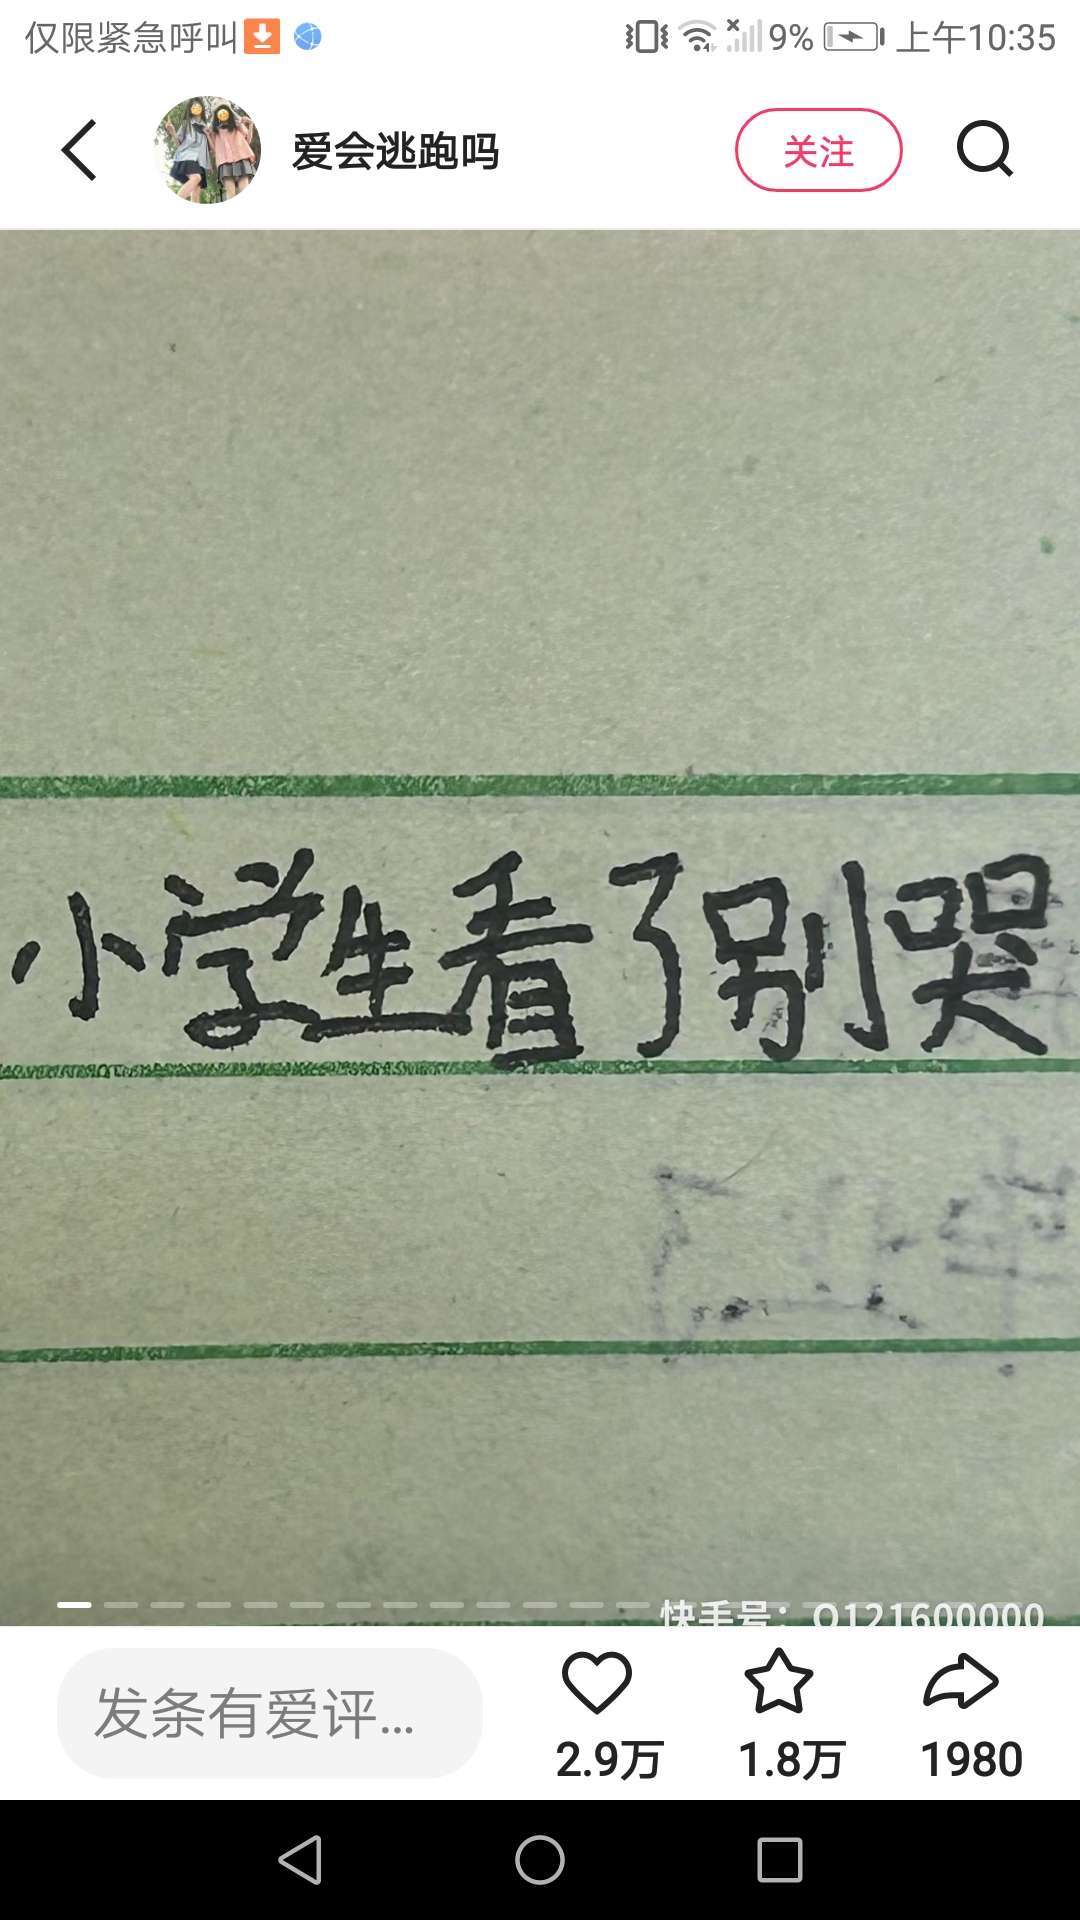 仅限紧急呼叫 9% 上午10:35
爱会逃跑吗 关注
小学生看了别哭
快手号：O121600000
发条有爱评...
2.9万 1.8万 1980